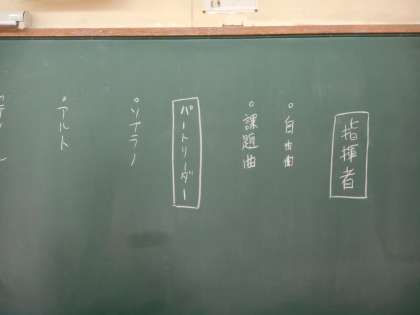 指揮者
○自由曲
○課題曲
パートリーダー
○ソプラノ
○アルト